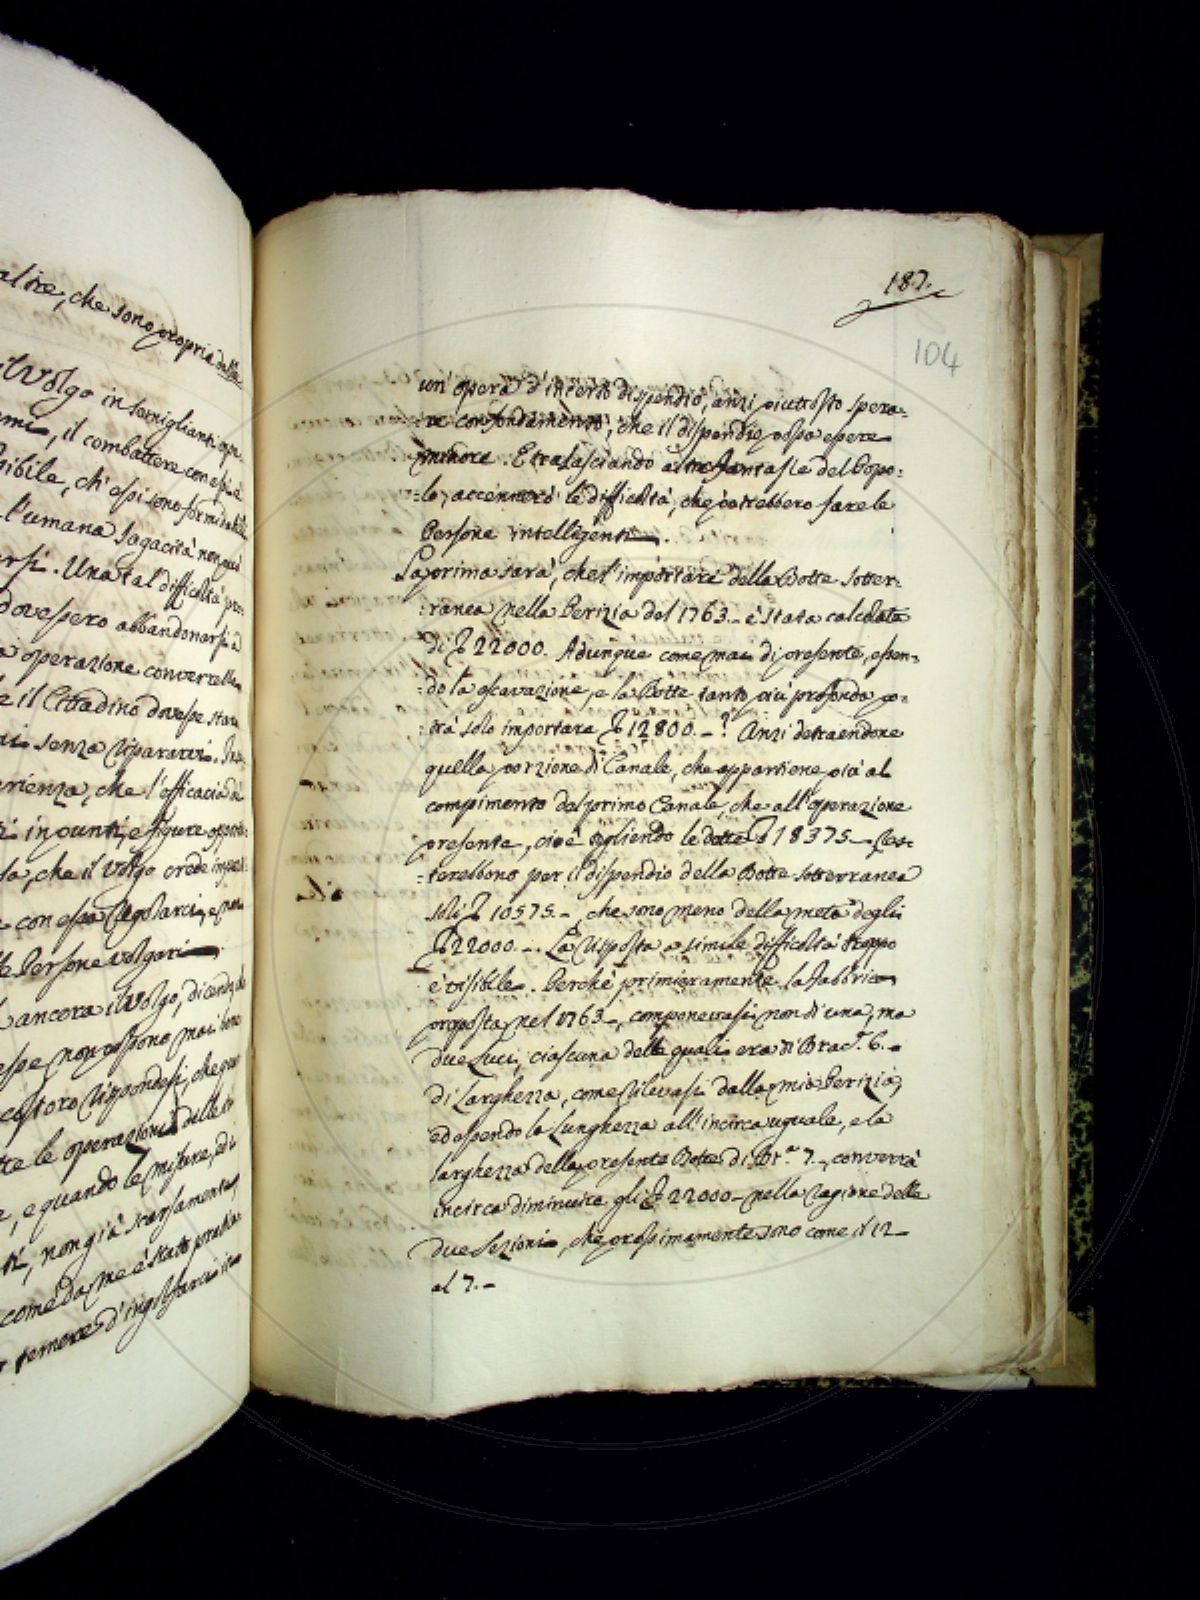 altre, che sono propria della
Volgo in somiglianti ope-
, il combattere con essi è
, ch'essi sono formidabili
l'umana sagacità non può
. Una tal difficoltà pro-
dovessero abbandonarsi
operazione converrebbe
il Cittadino dovesse stare
senza ripararvi.
, che l'efficacia
in punti, e figure
, che il Volgo crede
con essa regolarci, e
Persone volgari
ancora il Volgo, dicendo, che
non possono mai
costoro rispondesi, che
le operazioni delle
, e quando le misure, ed i
, non già scarsamente,
come da me è stato
temere d'ingolfarci in
187.
104
un' opera d'incerto dispendio, anzi piuttosto spera-
re con fondamento, che il dispendio possa essere
minore. E tralasciando altre fantasie del Popo:
:lo, accennerò le difficoltà, che potrebbero fare le
Persone intelligenti.
La prima sarà, che l'importare della Botte sotter:
:ranea nella Perizia del 1763. è stata calcolata
di £ 22000. Adunque come mai di presente, essen:
:do la escavazione, e la Botte tanto più profonda po:
:trà solo importare £ 12800. -? Anzi detraendone
quella porzione di Canale, che appartiene più al
compimento del primo Canale, che all'operazione
presente, cioè togliendo le dette £ 18375. res:
:terebbono per il dispendio della Botte sotterranea
soli £ 10575. -, che sono meno della metà degli
£ 22000. -. La risposta a simile difficoltà troppo
è visibile. Perchè primieramente la fabbrica
proposta nel 1763, componevasi non di una, ma
due Luci, ciascuna delle quali era di Brac. 6. -
di Larghezza, come rilevasi dalla mia Perizia,
ed essendo la Lunghezza all'incirca uguale, e la
larghezza della presente Botte di Br.ª 7., converrà
incirca diminuire gli £ 22000 - nella ragione delle
due Sezioni, che prossimamente sono come il 12
al 7. -